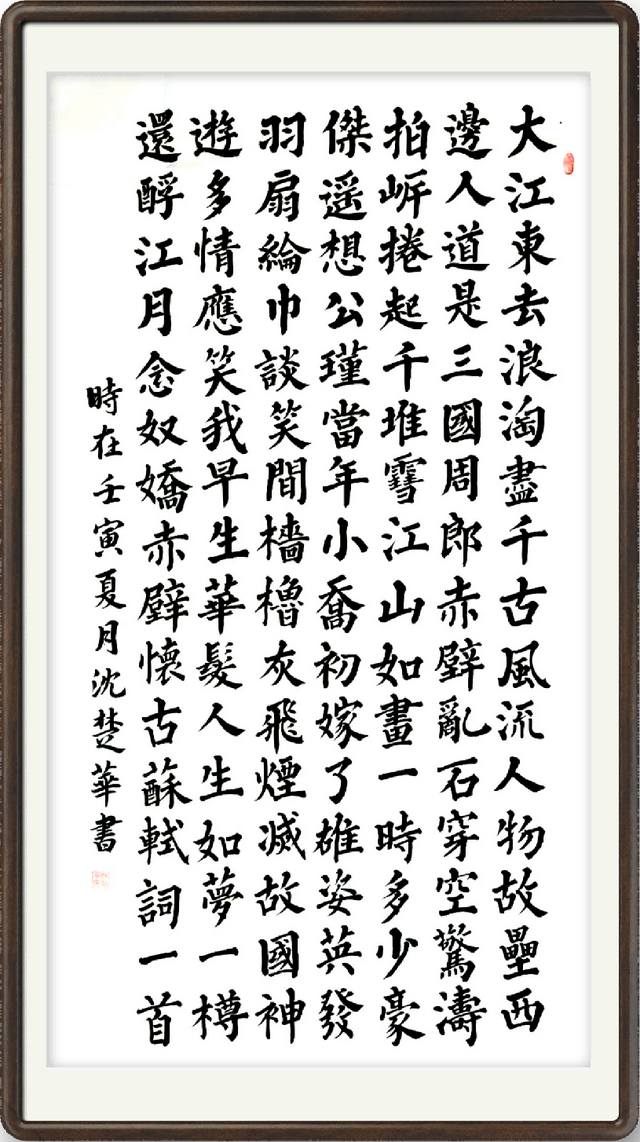 大江東去浪淘盡千古風流人物故壘西
邊人道是三國周郎赤壁亂石穿空驚濤
拍岍捲起千堆雪江山如畫一時多少豪
傑遥想公瑾當年小喬初嫁了雄姿英發
羽扇綸巾談笑間檣櫓灰飛煙滅故國神
遊多情應笑我早生華髮人生如夢一樽
還酹江月念奴嬌赤壁懷古蘇軾詞一首
時在壬寅夏月沈楚華書